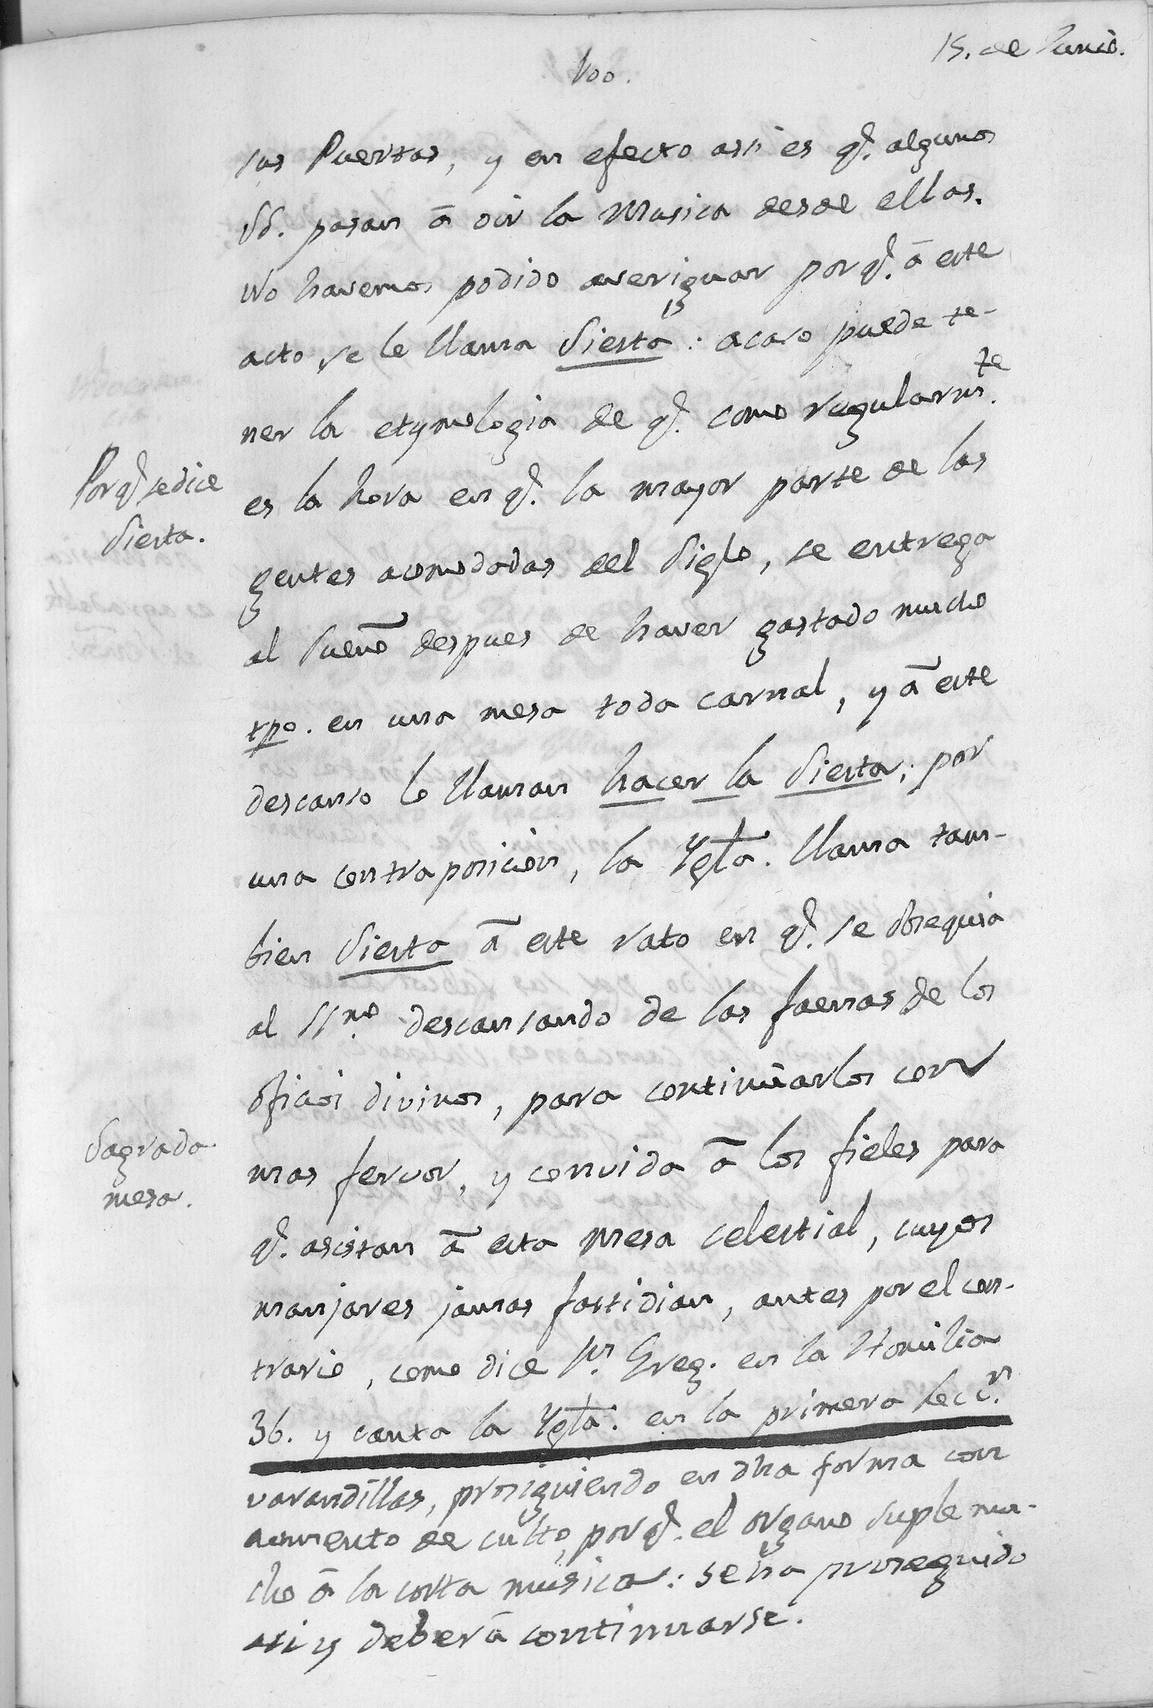 15. de Junio.
100.
sus Puertas, y en efecto assi es q.e algunos
SS. pasan â oir la Musica desde ellas.
No havemos podido averiguar porq.e â este
acto se le llama Siesta: acaso puede te-
ner la etymologia de q.e como regularm.te
es la hora en q.e la mayor parte de las
gentes acomodadas del Siglo, se entrega
al sueño despues de haver gastado mucho
tpo. en una mesa toda carnal, y â este
descanso le llaman hacer la Siesta; por
una contraposicion, la Ygla. llama tam-
bien Siesta â este rato en q.e se obsequia
al SS.mo descansando de las faenas de los
oficios divinos, para continuarlos con
mas fervor, y convida â los fieles para
q.e asistan â esta mesa celestial, cuyos
manjares jamas fastidian, antes por el con-
trario, como dice Sn. Greg. en la Homilia
36. y canta la Ygla. en la primera lecc.n
Porq.e se dice
Siesta.
Sagrada
mesa.
varandillas, prosiguiendo en dha forma con
aumento de culto, porq.e el organo suple mu-
cho â la corta musica: se ha proseguido
asi y deberâ continuarse.